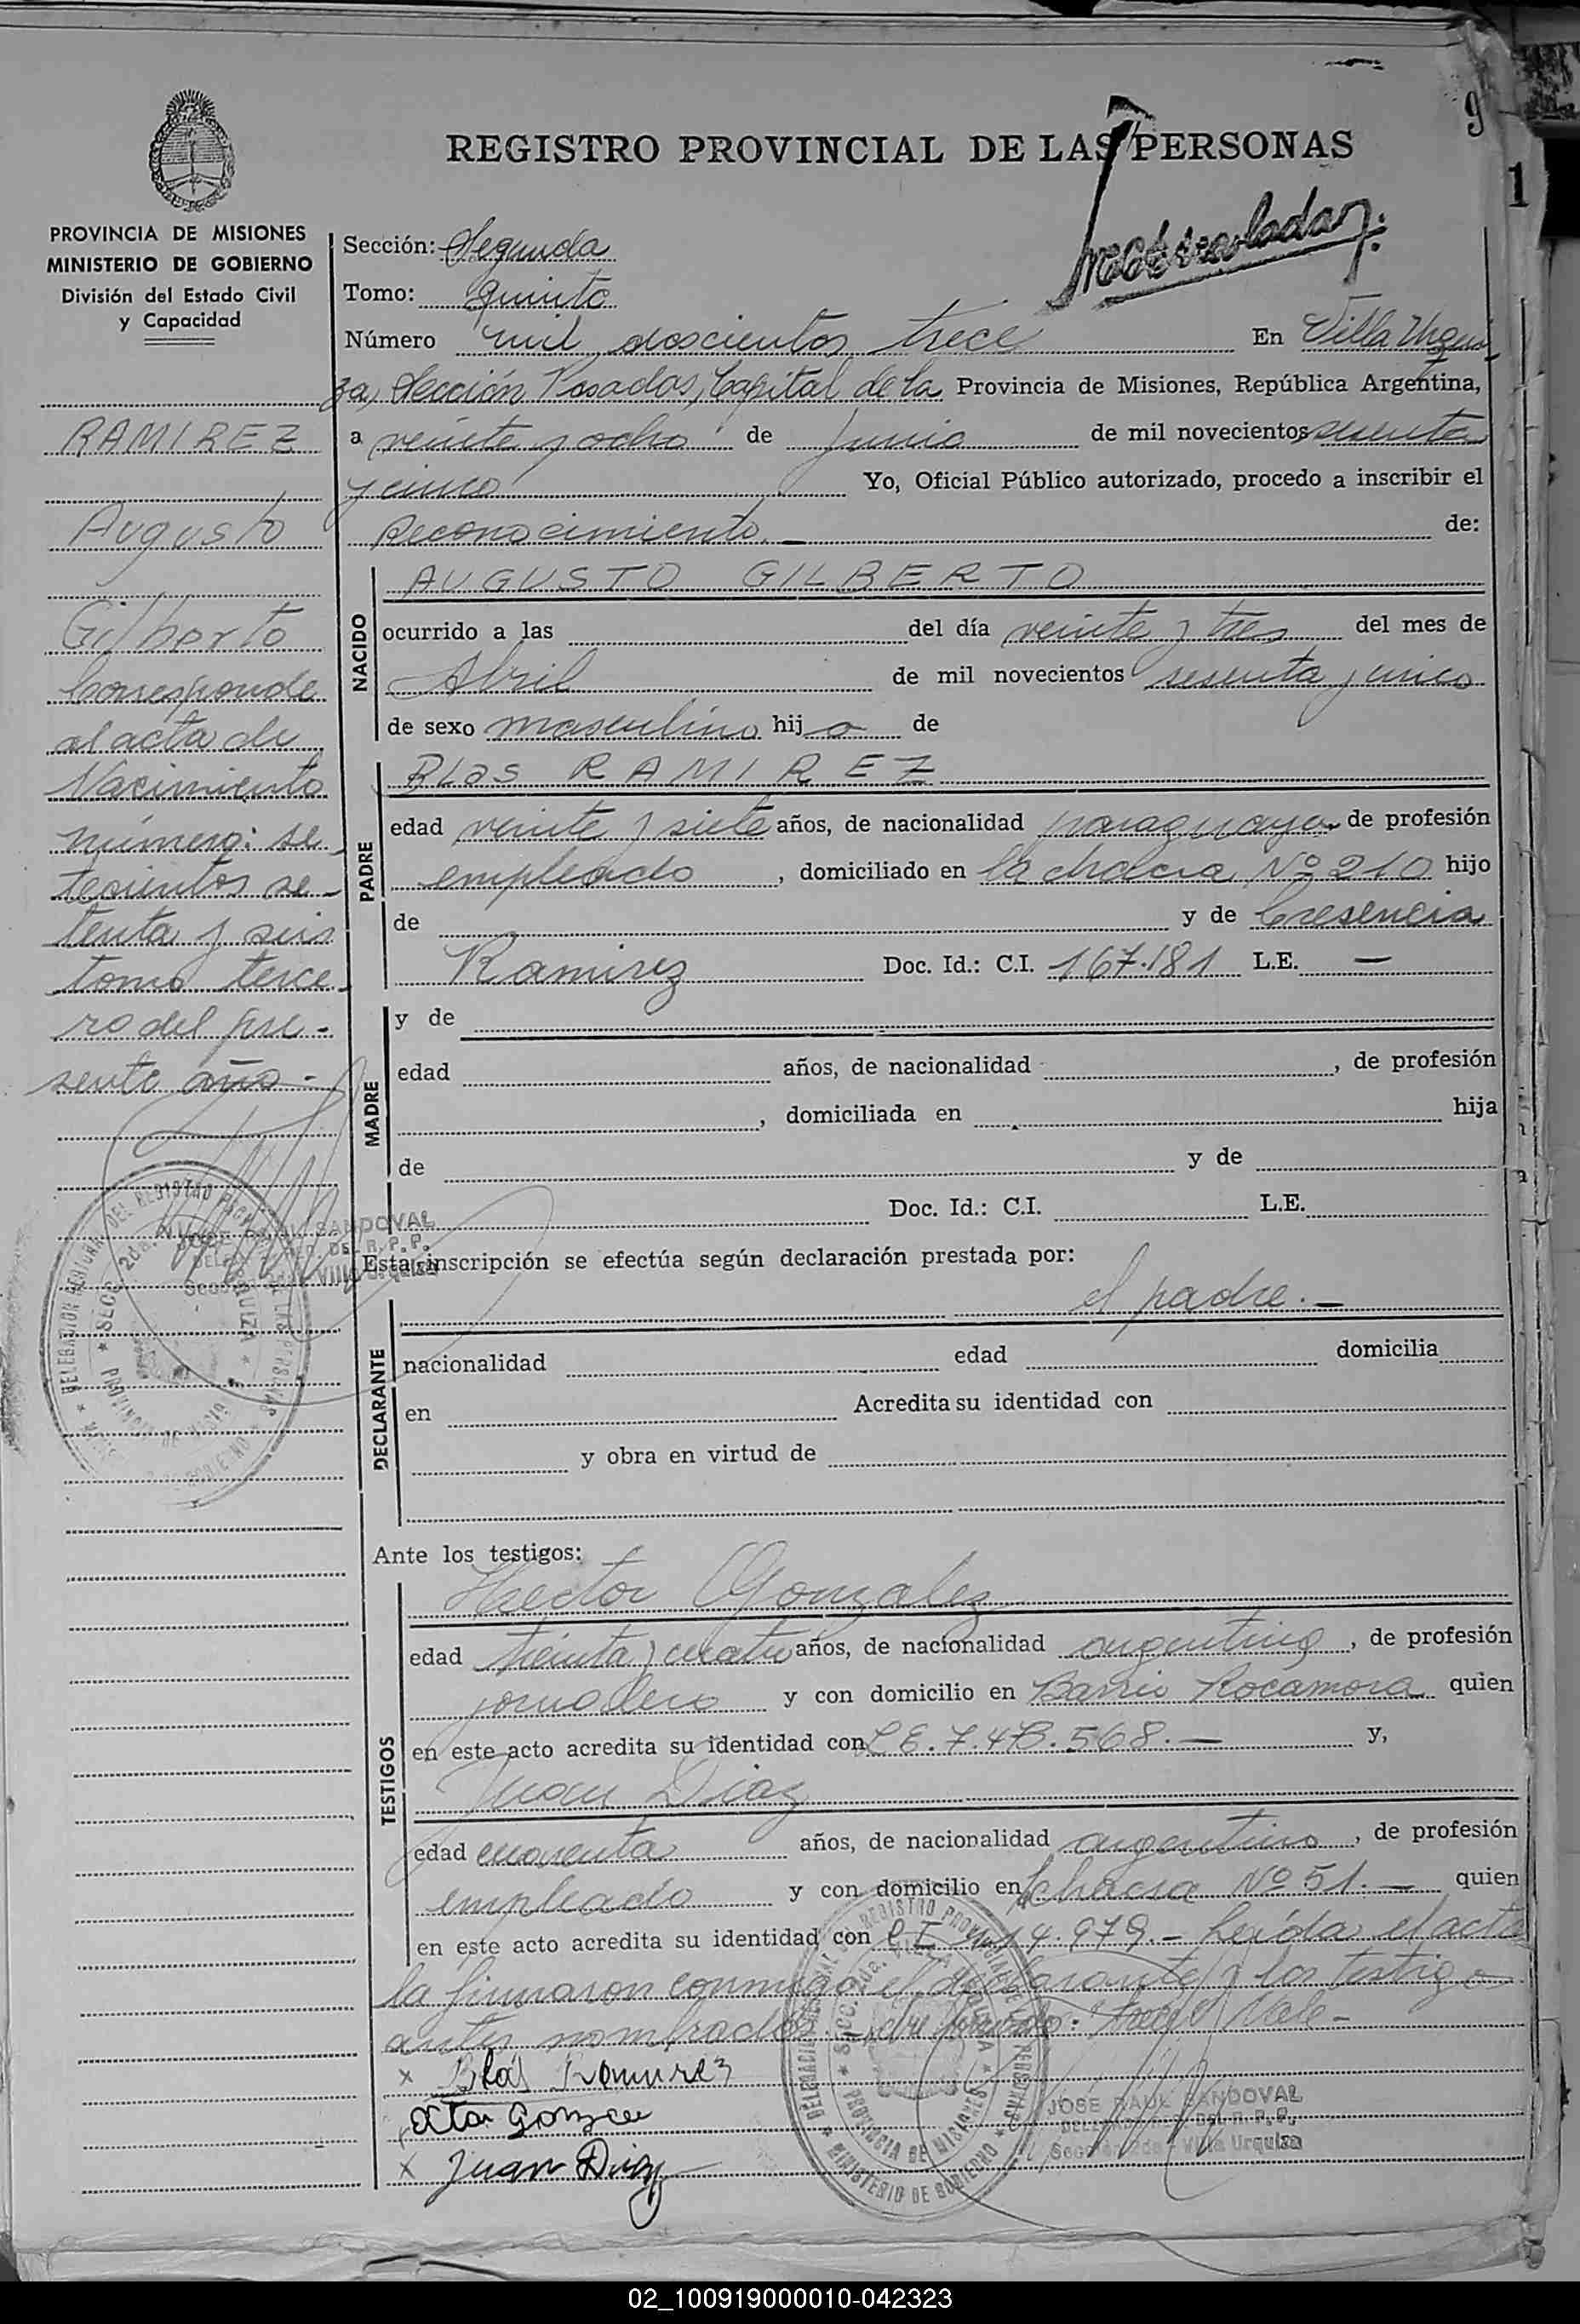 9
REGISTRO PROVINCIAL DE LAS PERSONAS
1
PROVINCIA DE MISIONES
MINISTERIO DE GOBIERNO
División del Estado Civil
y Capacidad
RAMIREZ
Augusto
Gilberto
Corresponde
al acta de
Nacimiento
número: se-
tecientos se-
tenta y seis
tomo terce-
ro del pre-
sente año.-
Sección: Segunda
Tomo: Quinto
Número mil doscientos trece En Villa Urqui-
za, Sección Posadas, Capital de la Provincia de Misiones, República Argentina,
a veinte y ocho de Junio de mil novecientos sesenta
y cinco Yo, Oficial Público autorizado, procedo a inscribir el
Reconocimiento.- de:
NACIDO
AUGUSTO GILBERTO
ocurrido a las del día veinte y tres del mes de
Abril de mil novecientos sesenta y cinco
de sexo masculino hijo de
PADRE
Blas RAMIREZ
edad veinte y siete años, de nacionalidad paraguaya de profesión
empleado, domiciliado en la chacra Nº 210 hijo
de y de Cresencia
Ramirez Doc. Id.: C.I. 167.181 L.E. —
MADRE
y de
edad años, de nacionalidad , de profesión
, domiciliada en hija
de y de
Doc. Id.: C.I. L.E.
Esta inscripción se efectúa según declaración prestada por:
el padre.-
DECLARANTE
nacionalidad edad domicilia
en Acredita su identidad con
y obra en virtud de
Ante los testigos:
TESTIGOS
Hector Gonzalez
edad treinta y cuatro años, de nacionalidad argentino, de profesión
jornalero y con domicilio en Barrio Rocamora quien
en este acto acredita su identidad con L E. y,
Juan Diaz
edad cuarenta años, de nacionalidad argentino, de profesión
empleado y con domicilio en chacra Nº 51.- quien
en este acto acredita su identidad con C I 14.979.- Leída el acta
la firmaron conmigo el declarante y los testigos
antes nombrados. Vale-
x Blas Ramirez
x Gonzalez
x Juan Diaz
JOSE RAUL SANDOVAL
DELEGADO DEL R. P. P.
Sección 2da - Villa Urquiza
DELEGACION SECCIONAL DEL REGISTRO PROVINCIAL DE LAS PERSONAS
SECC. 2da. VILLA URQUIZA
PROVINCIA DE MISIONES
MINISTERIO DE GOBIERNO
02_100919000010-042323